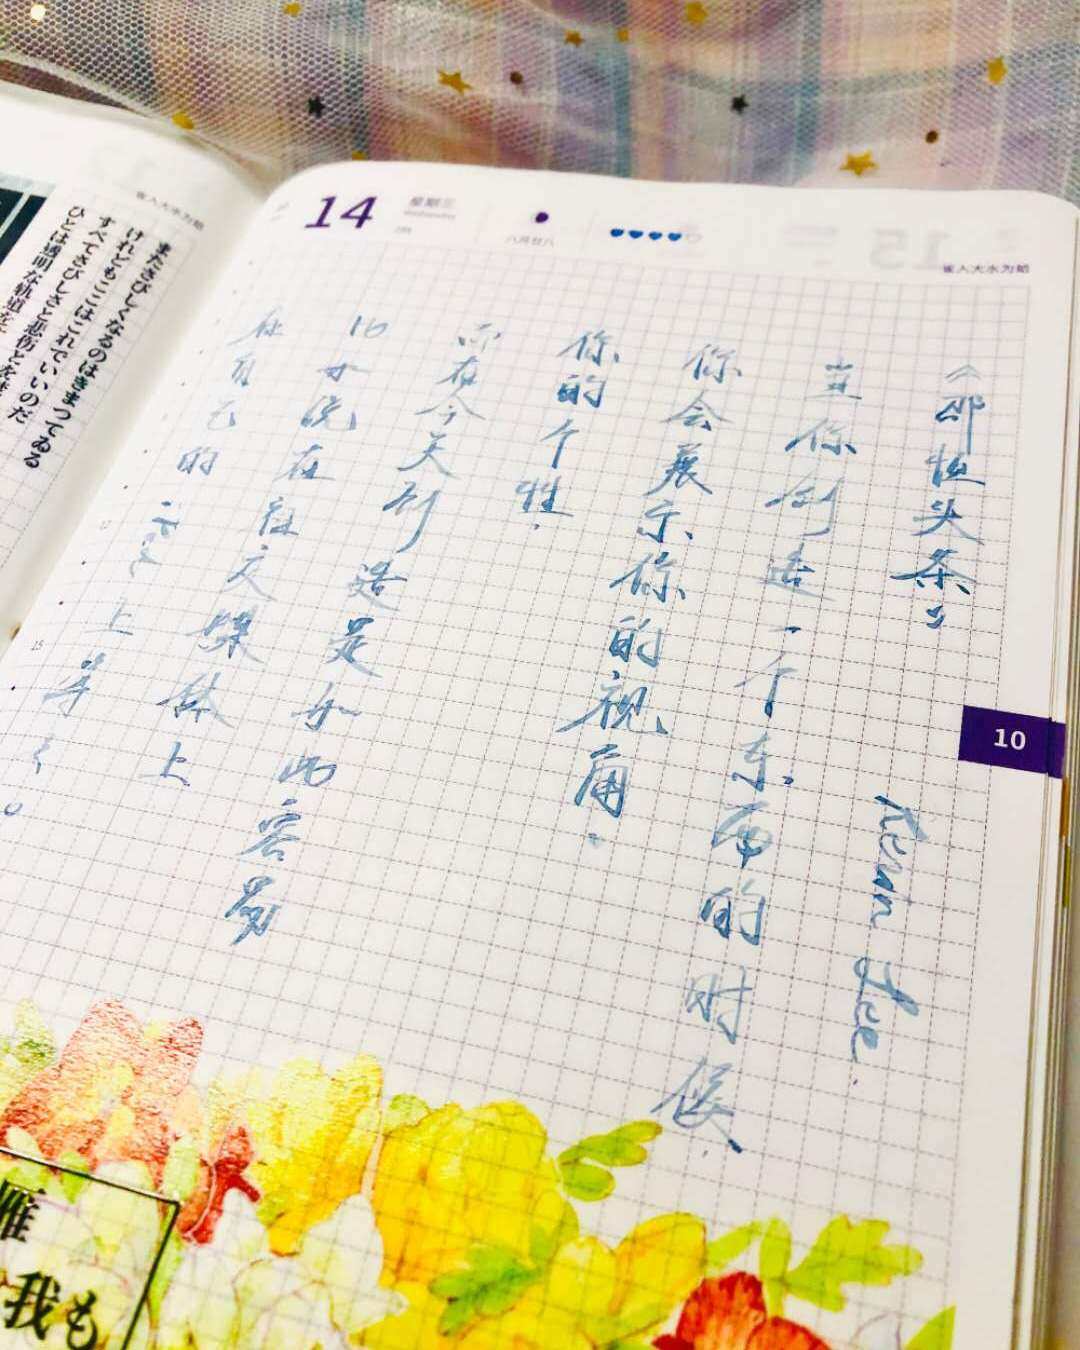 雀入大水为蛤
またさびしくなるのはきまつてゐる
けれどもここはこれでいいのだ
すべてさびしさと悲伤とを
ひとは透明な軌道を
14 星期三
Wednesday
八月廿八
雀入大水为蛤
《邵恒头条》 Kevan Lee.
当你创造一个东西的时候,
你会展示你的视角.
你的个性.
而在今天创造是如此容易
比如说在社交媒体上
在自己的 上等々。
10
15
雁
我も